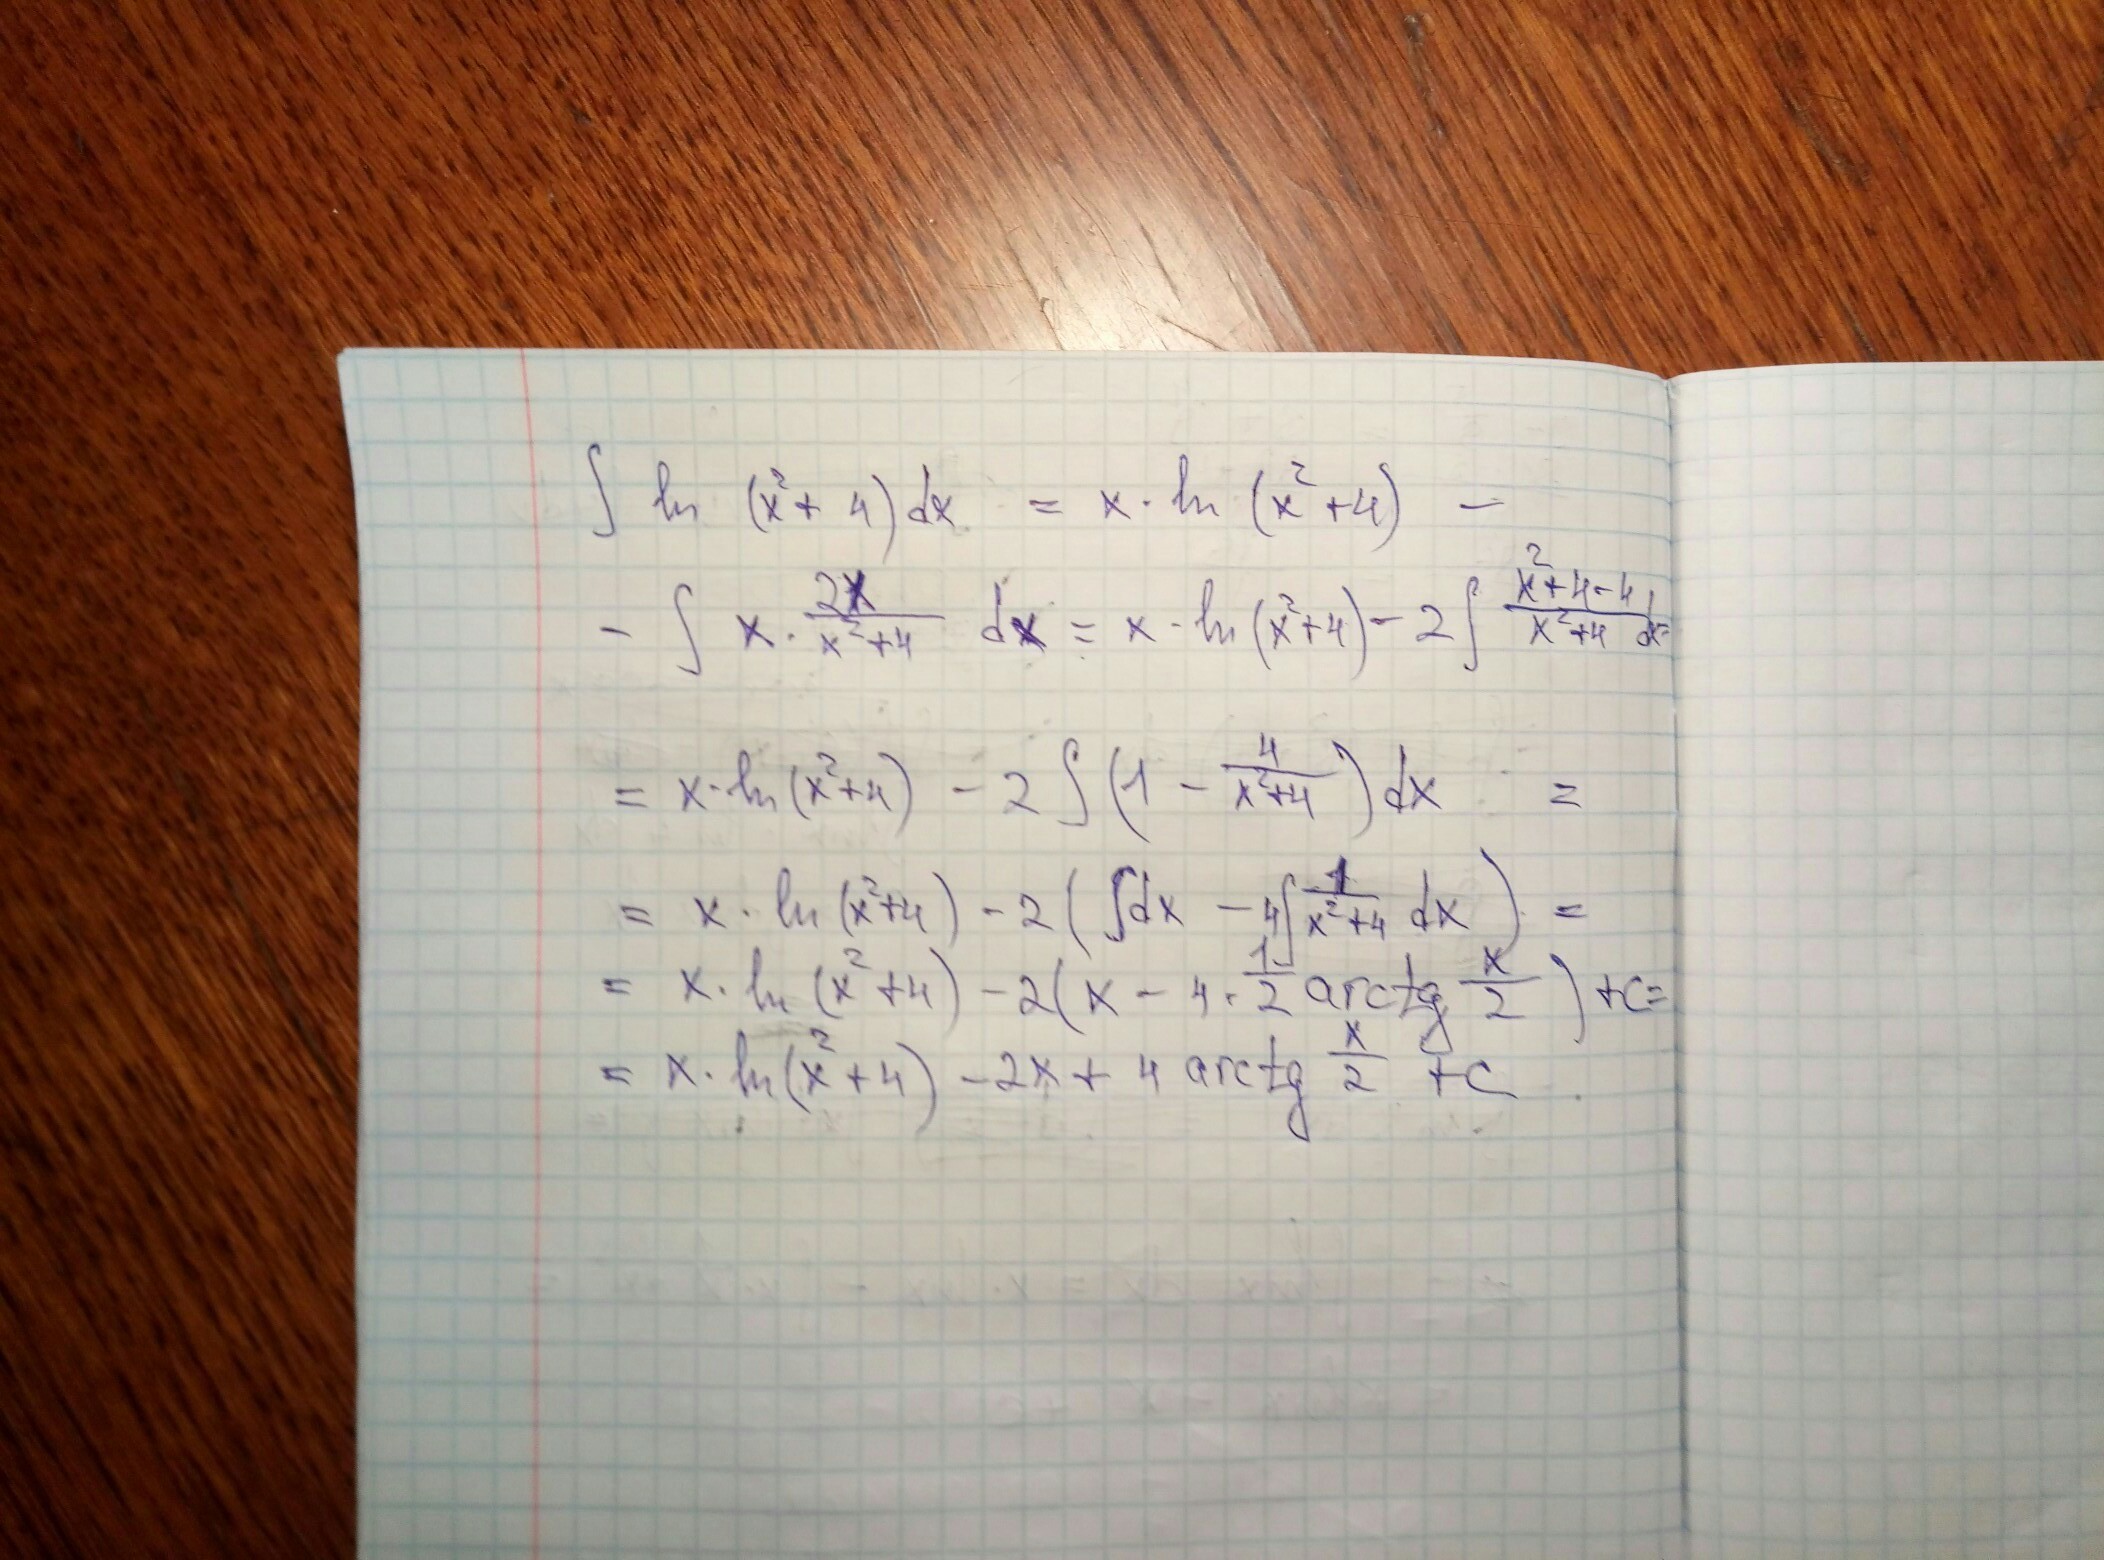 ∫ ln (x²+4)dx = x·ln (x²+4) −
− ∫ x · 2x/(x²+4) dx = x·ln(x²+4) − 2∫ (x²+4−4)/(x²+4) dx =
= x·ln(x²+4) − 2 ∫(1 − 4/(x²+4))dx =
= x·ln(x²+4) − 2(∫dx − 4∫ 1/(x²+4) dx) =
= x·ln(x²+4) − 2(x − 4·1/2 arctg x/2) +c=
= x·ln(x²+4) −2x+ 4 arctg x/2 +c